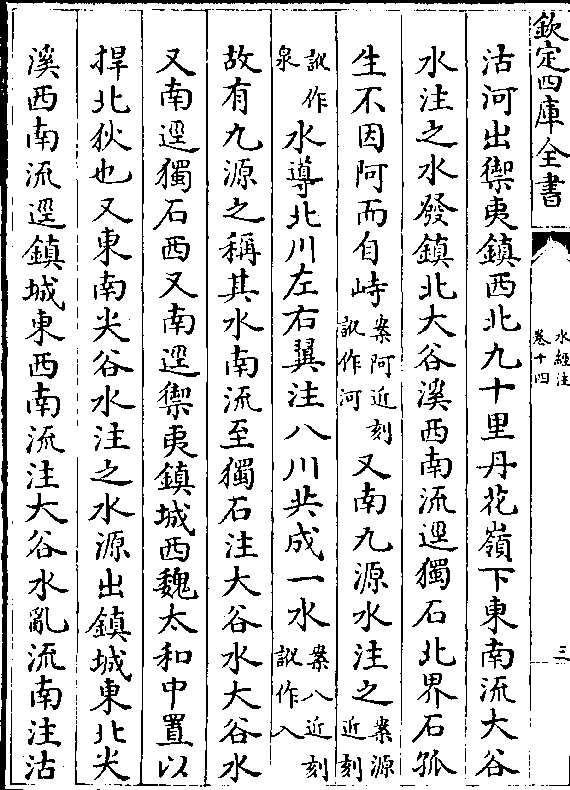 欽定四庫全書
水經注
卷十四
三
沽河出禦夷鎮西北九十里丹花嶺下東南流大谷
水注之水發鎮北大谷溪西南流逕獨石北界石孤
生不因阿而自峙案阿近刻訛作河又南九源水注之案源近刻
訛作泉水導北川左右翼注八川共成一水案八近刻訛作入
故有九源之稱其水南流至獨石注大谷水大谷水
又南逕獨石西又南逕禦夷鎮城西魏太和中置以
捍北狄也又東南尖谷水注之水源出鎮城東北尖
溪西南流逕鎮城東西南流注大谷水亂流南注沽